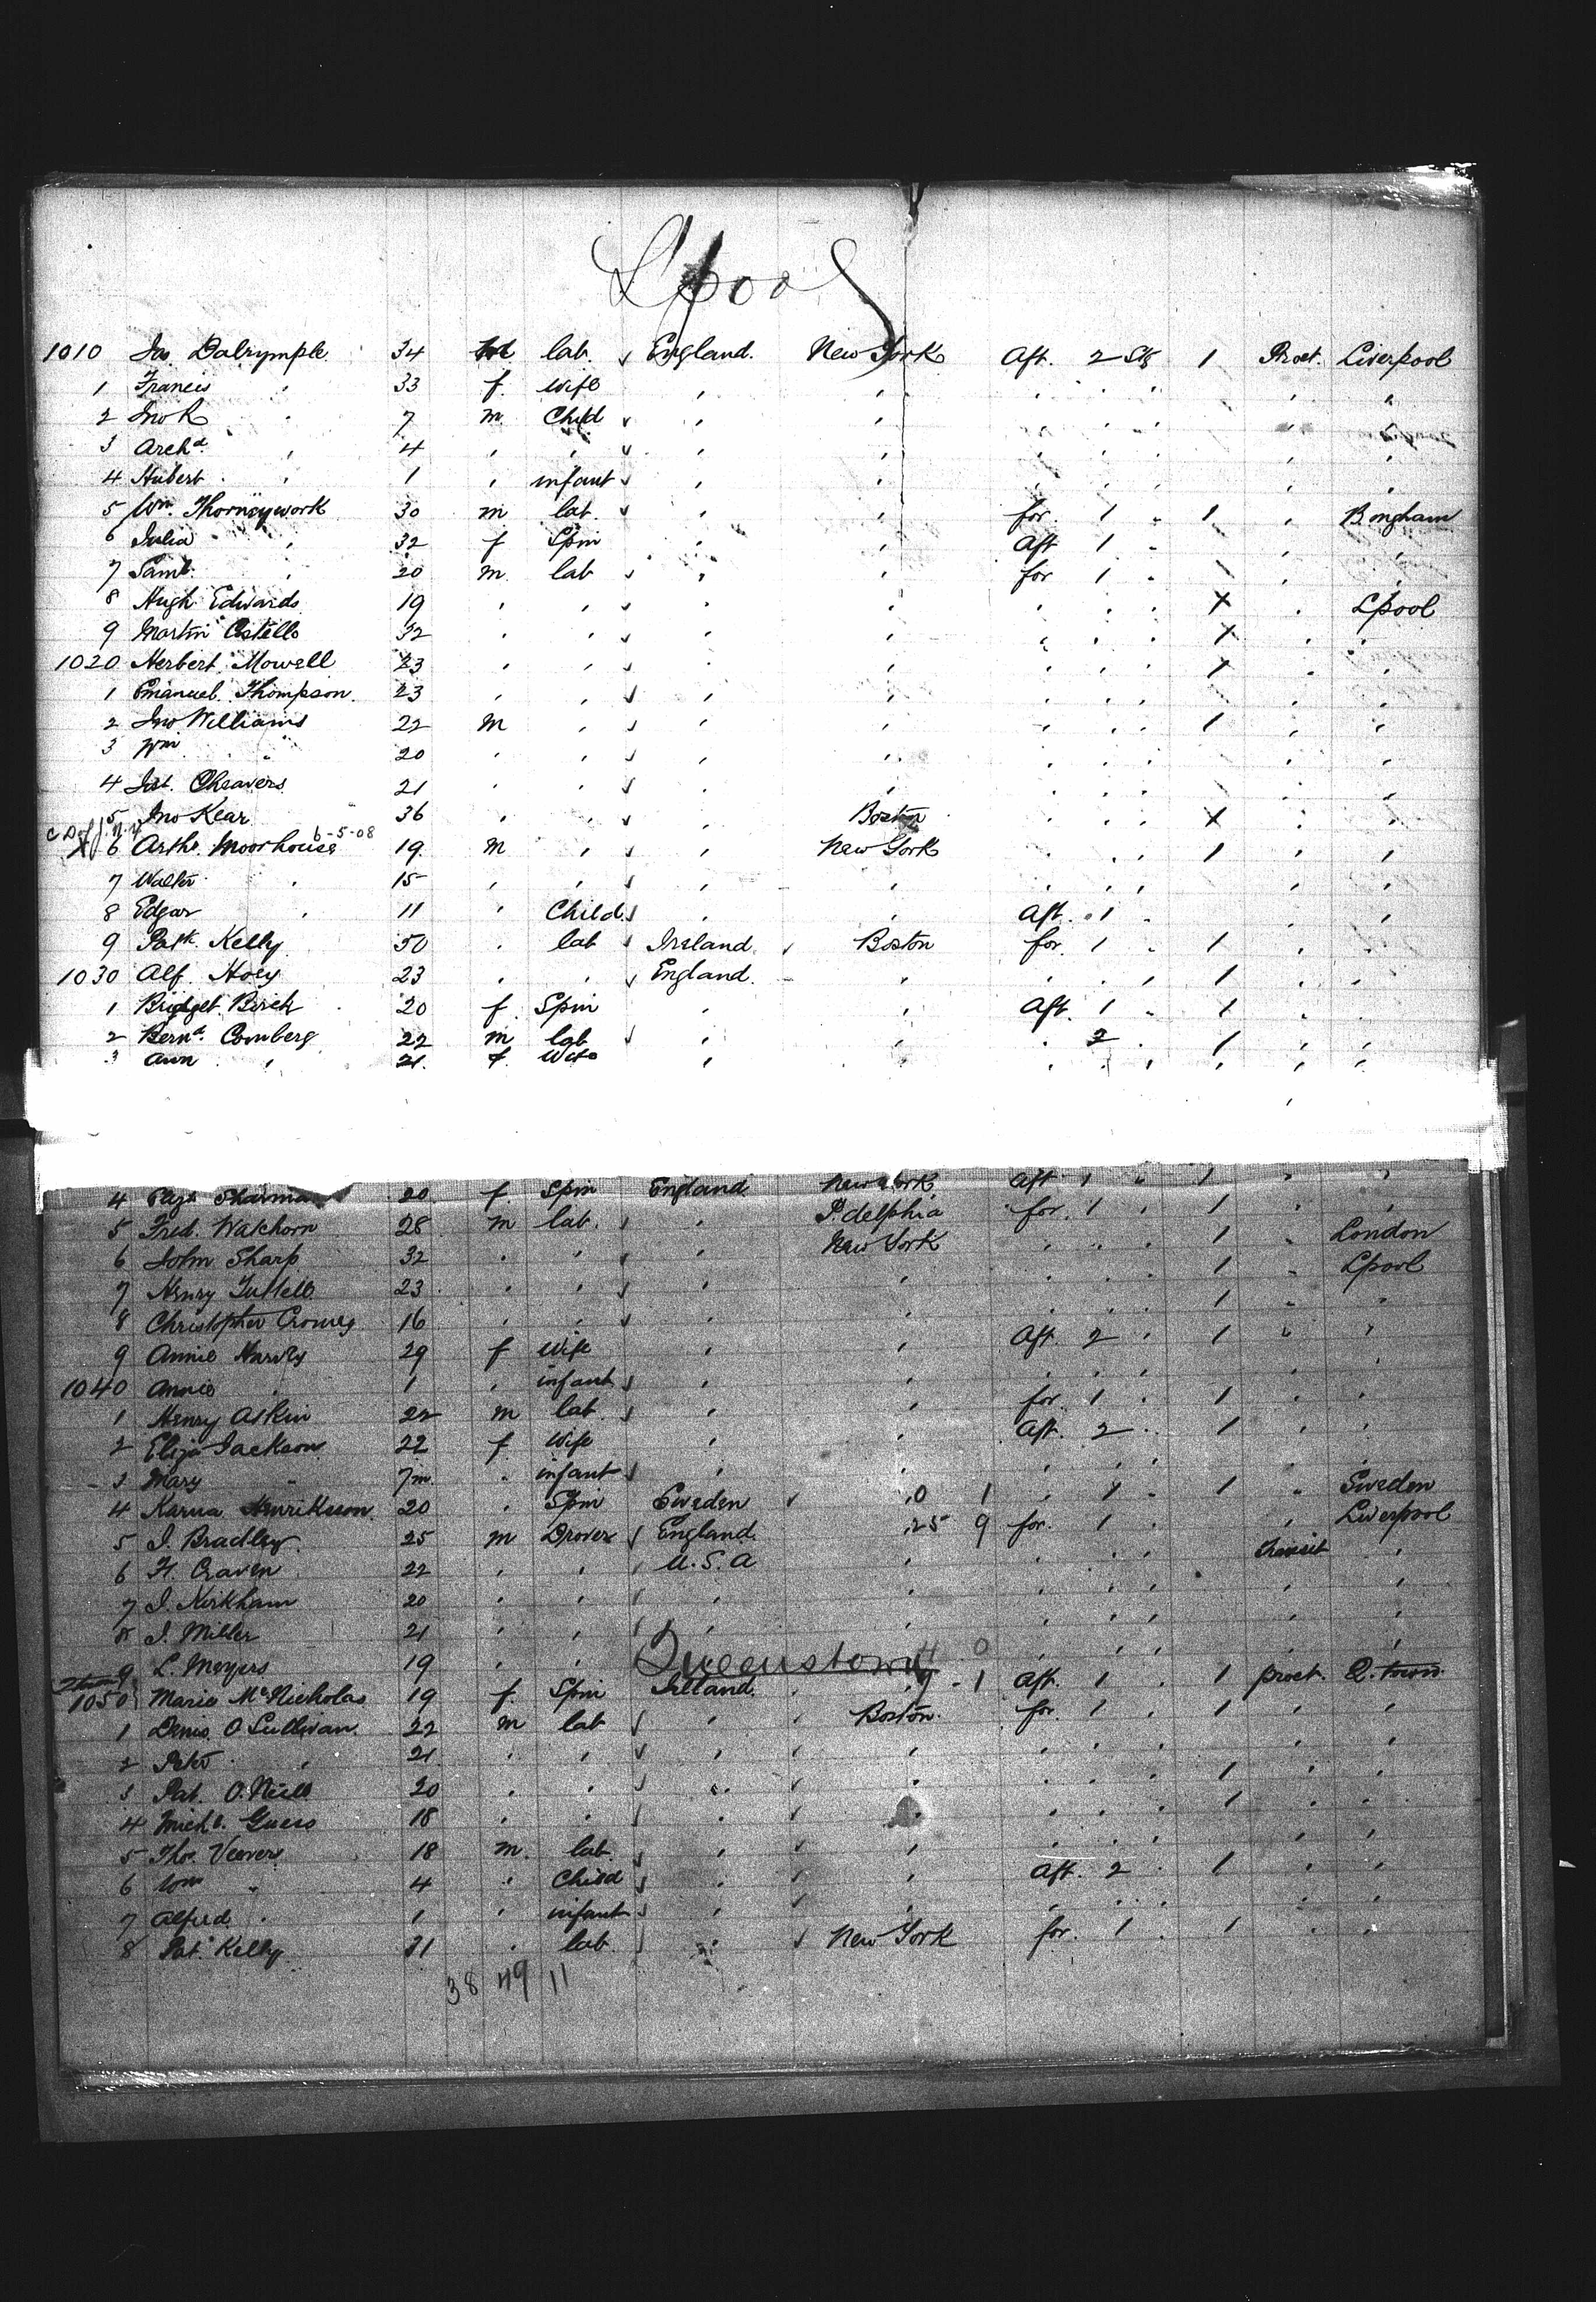 Lpool
1010 Jas Dalrymple 34 lab. England. New York Aft. 2 Stg 1 Prot. Liverpool
1 Francis " 33 f. Wife " " " " " "
2 Jno R " 7 m Child " " " " " "
3 Archd. " 4 " " " " " " " "
4 Hubert " 1 " infant " " " " " "
5 Wm. Thorneywork 30 m lab. " " for. 1 " 1 " Bingham
6 Julia " 32 f Spin " " Aft 1 " " "
7 Saml. " 20 m lab " " for 1 " 1 " "
8 Hugh Edwards 19 " " " " " " " X " Lpool
9 Martin Costello 32 " " " " " " " X " "
1020 Herbert Mowell 23 " " " " " " " 1 " "
1 Emanuel Thompson 23 " " " " " " " " "
2 Jno Williams 22 m " " " " " " 1 " "
3 Wm " 20 " " " " " " " " "
4 Jas. Cheavers 21 " " " " " " " " "
5 Jno Kear 36 " " " Boston " " " X " "
6-5-08
6 Arthr. Moorhouse 19 m " " New York " " " 1 " "
7 Walter " 15 " " " " " " " " "
8 Edgar " 11 " Child " " Aft. 1 " "
9 Patk. Kelly 50 " lab Ireland Boston for. 1 " 1 "
1030 Alf. Hoey 23 " " England " " " " 1 " "
1 Bridget Birch 20 f. Spin " " Aft. 1 " 1 "
2 Bernd. Comberg 22 m lab " " " 2 " 1 " "
3 Ann " 21. f. Wife " " " " " " " "
4 Eliza Sharman 20 f. Spin England New York Aft 1 " 1 " "
5 Fred. Walkhorn 28 m lab. " P.delphia for. 1 " 1 " "
6 John Sharp 32 " " " New York " " " 1 " London
7 Henry 23 " " " " " " " 1 " Lpool
8 Christopher 16 " " " " " " " 1 " "
9 Annie Harvey 29 f Wife " " Aft. 2 " 1 " "
1040 Annie " 1 " infant " " " " " " "
1 Henry Askin 22 m lab " " for. 1 " 1 " "
2 Eliza Jackson 22 f Wife " " Aft. 2 " 1 " "
3 Mary " 7m. " infant " " " " " " "
4 Karna Henriksson 20 " Spin Sweden " 0 1 " 1 " 1 " Sweden
5 J. Bradley 25 m Drover England. 25 9 for. 1 " " Liverpool
6 H. Craven 22 " " U.S.A " " " " transit "
7 J. Kirkham 20 " " " " " " " " "
8 J. Miller 21 " " " " " " " "
9 L. Meyers 19 " " 4 0 " " " " "
Queenstown
1050 Marie McNicholas 19 f. Spin Ireland. 9 - 1 Aft. 1 " 1 prot. Q.town
1 Denis O Sullivan 22 m lab " Boston. for. 1 " 1 " "
2 Peter " 21 " " " " " " " " "
3 Pat. O.Neill 20 " " " " " " " 1 " "
4 Michl. 18 " " " " " " " 1 " "
5 Thos. Veevers 18 m. lab " " " " " " "
6 Wm " 4 " Child " " Aft. 2 " 1 " "
7 Alfred " 1 " infant " " " " " "
8 Pat. Kelly 21 " lab " New York for. 1 " 1 " "
38 49 11